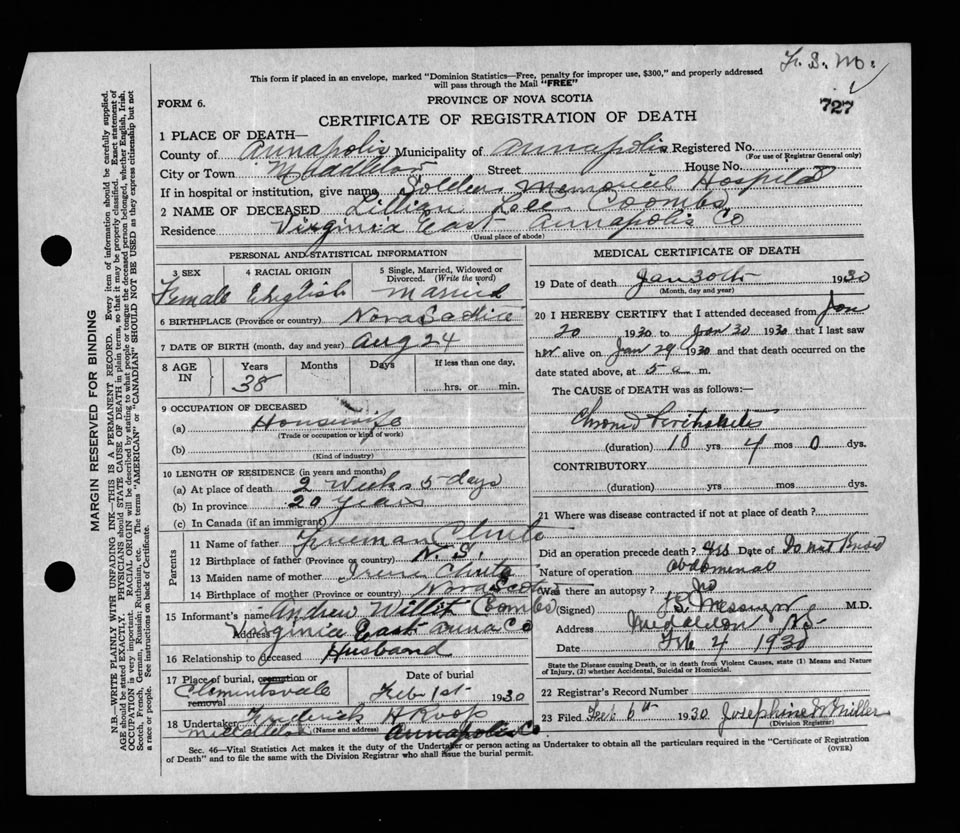 F. S. M.
This form if placed in an envelope, marked "Dominion Statistics—Free, penalty for improper use, $300," and properly addressed
will pass through the Mail "FREE"
727
FORM 6.
PROVINCE OF NOVA SCOTIA
CERTIFICATE OF REGISTRATION OF DEATH
1 PLACE OF DEATH—
County of Annapolis Municipality of Annapolis Registered No.
(For use of Registrar General only)
City or Town Middleton Street House No.
If in hospital or institution, give name Soldiers Memorial Hospital
2 NAME OF DECEASED Lillian Coombs
Residence Virginia East Annapolis Co
(Usual place of abode)
PERSONAL AND STATISTICAL INFORMATION
3 SEX 4 RACIAL ORIGIN 5 Single, Married, Widowed or Divorced. (Write the word)
Female English Married
6 BIRTHPLACE (Province or country) Nova Scotia
7 DATE OF BIRTH (month, day and year) Aug 24
8 AGE IN Years Months Days If less than one day,
38 hrs. or min.
9 OCCUPATION OF DECEASED
(a) Housewife
(Trade or occupation or kind of work)
(b)
(Kind of industry)
10 LENGTH OF RESIDENCE (in years and months)
(a) At place of death 2 weeks 5 days
(b) In province 20 years
(c) In Canada (if an immigrant)
Parents
11 Name of father Freeman Chute
12 Birthplace of father (Province or country) N. S.
13 Maiden name of mother Irene Chute
14 Birthplace of mother (Province or country) Nova Scotia
15 Informant's name Andrew Willit Coombs
Address Virginia East Anna Co
16 Relationship to deceased Husband
17 Place of burial, cremation or removal Date of burial
Clementsvale Feb 1st 1930
18 Undertaker Frederick H Roop
Middleton (Name and address) Annapolis Co.
MEDICAL CERTIFICATE OF DEATH
19 Date of death Jan 30th 1930
(Month, day and year)
20 I HEREBY CERTIFY that I attended deceased from Jan
20 1930 to Jan 30 1930 that I last saw
her alive on Jan 29 1930 and that death occurred on the
date stated above, at 5 a m.
The CAUSE of DEATH was as follows:—
Chronic
(duration) 10 yrs 4 mos 0 dys.
CONTRIBUTORY
(duration) yrs. mos. dys.
21 Where was disease contracted if not at place of death?
Did an operation precede death? Yes Date of Do not Know
Nature of operation abdominal
Was there an autopsy? No
(Signed) J. S. Messenger M.D.
Address Middleton N.S.
Date Feb 4 1930
State the Disease causing Death, or in death from Violent Causes, state (1) Means and Nature
of Injury, (2) whether Accidental, Suicidal or Homicidal.
22 Registrar's Record Number
23 Filed Feb 6th 1930 Josephine W Miller
(Division Registrar)
Sec. 46—Vital Statistics Act makes it the duty of the Undertaker or person acting as Undertaker to obtain all the particulars required in the "Certificate of Registration
of Death" and to file the same with the Division Registrar who shall issue the burial permit.
(OVER)
MARGIN RESERVED FOR BINDING
N.B.—WRITE PLAINLY WITH UNFADING INK—THIS IS A PERMANENT RECORD. Every item of information should be carefully supplied.
AGE should be stated EXACTLY. PHYSICIANS should STATE CAUSE OF DEATH in plain terms, so that it may be properly classified. Exact statement of
OCCUPATION is very important. RACIAL ORIGIN will be described by stating to what people or tongue the deceased person belonged, whether English, Irish,
Scotch, French, German, Russian, Ruthenian, etc. The terms "AMERICAN" or "CANADIAN" SHOULD NOT BE USED as they express citizenship but not
a race or people. See instructions on back of Certificate.